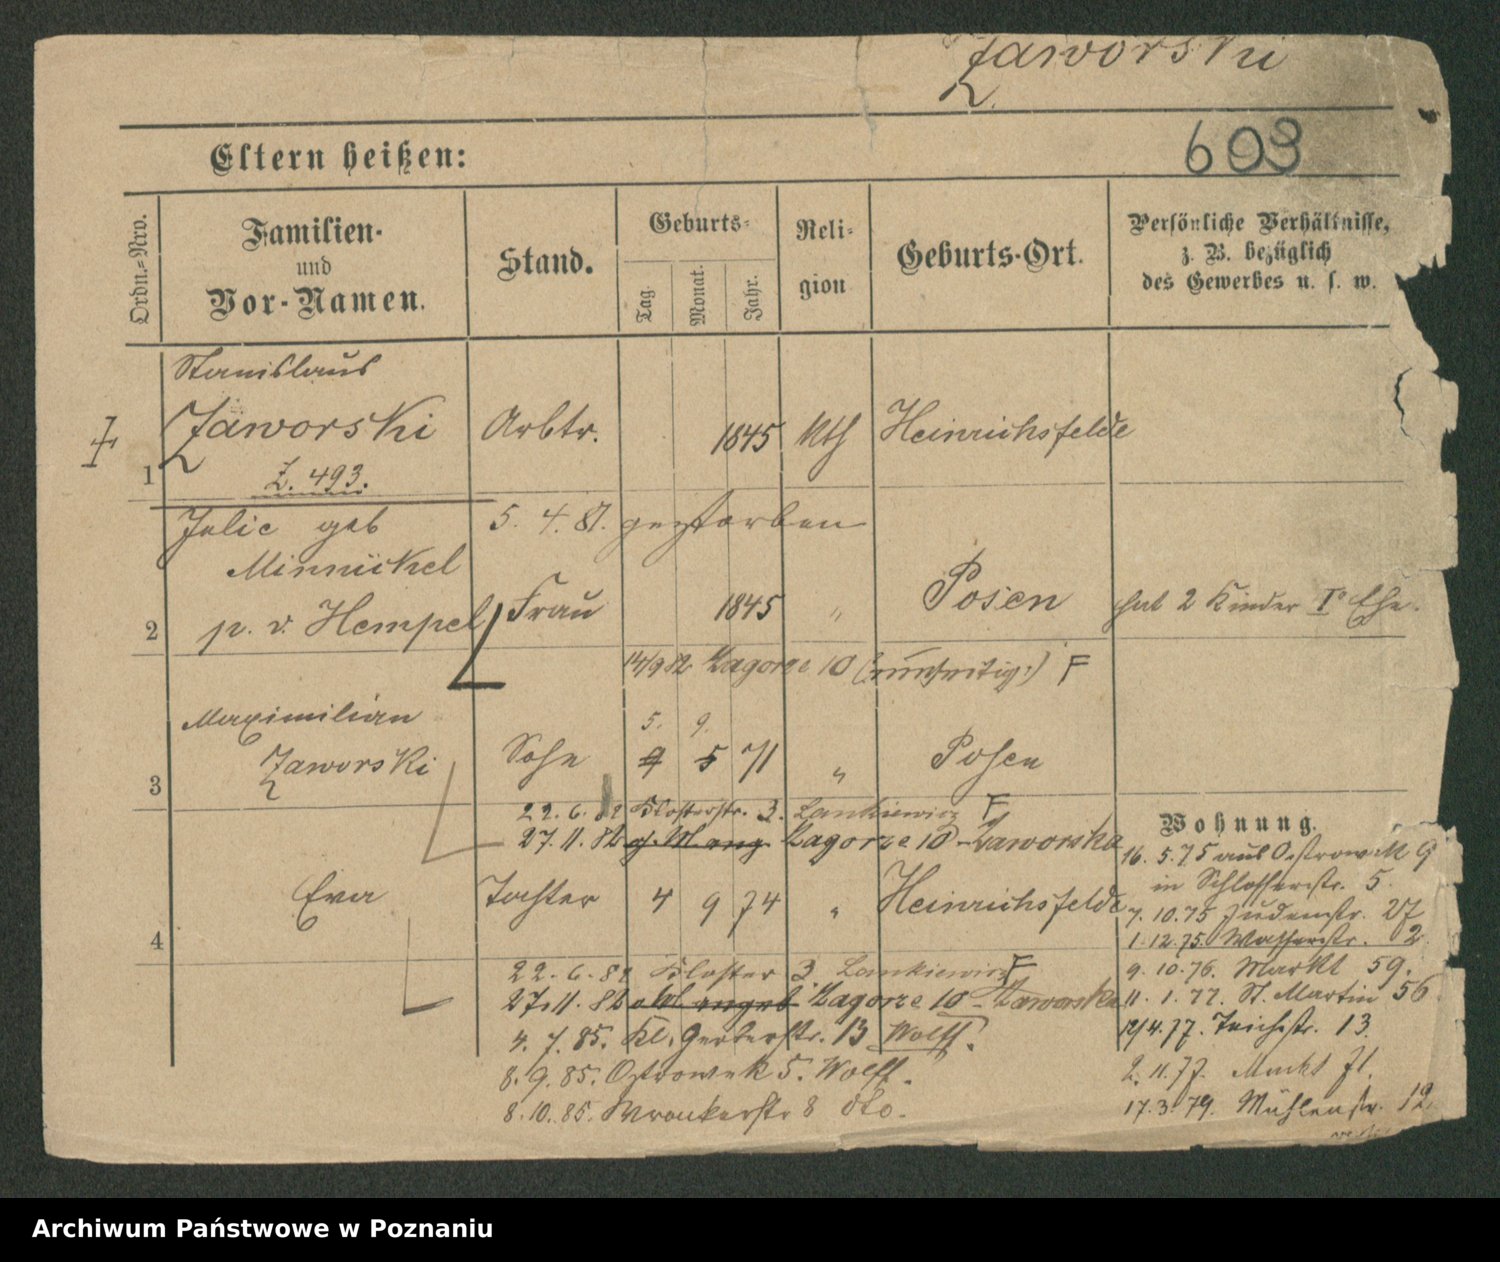 Jaworski
603
Eltern heißen:
Ordn.-Nro.
Familien-
und
Vor-Namen.
Stand.
Geburts-
Tag.
Monat.
Jahr.
Reli-
gion
Geburts-Ort.
Persönliche Verhältnisse,
z. B. bezüglich
des Gewerbes u. s. w.
Stanislaus
1 Jaworski Arbtr. 1845 kth Heinrichsfelde
Z. 493.
Julie geb 5. 4. 81. gestorben
Minnickel
2 p. v. Hempel Frau 1845 " Posen hat 2 Kinder I° Ehe.
14/9 82 Zagorze 10 F
Maximilian 5. 9.
3 Jaworski Sohn 9 5 71 " Posen
22.6.82 Klosterstr. 3. Lankiewicz F
27.11.82 Zagorze 10 - Jaworska
4 Eva Tochter 4 9 74 " Heinrichsfelde
22.6.82 Kloster 3 Lankiewicz F
27.11.82 Zagorze 10 - Jaworska
4. 7. 85. Kl. Gerberstr. 13 Wolff.
8. 9. 85. Ostrowek 5. Wolff.
8. 10. 85. Wronkerstr 8 dto.
Wohnung.
16. 5. 75 aus Ostrowek 9
in Schlosserstr. 5.
7. 10. 75 Judenstr. 27
1. 12. 75. Wasserstr. 2
9. 10. 76. Markt 59.
11. 1. 77. St. Martin 56
12/4. 77. Teichstr. 13.
2. 11. 77. Markt 71.
17. 3. 79. Mühlenstr. 12.
Archiwum Państwowe w Poznaniu